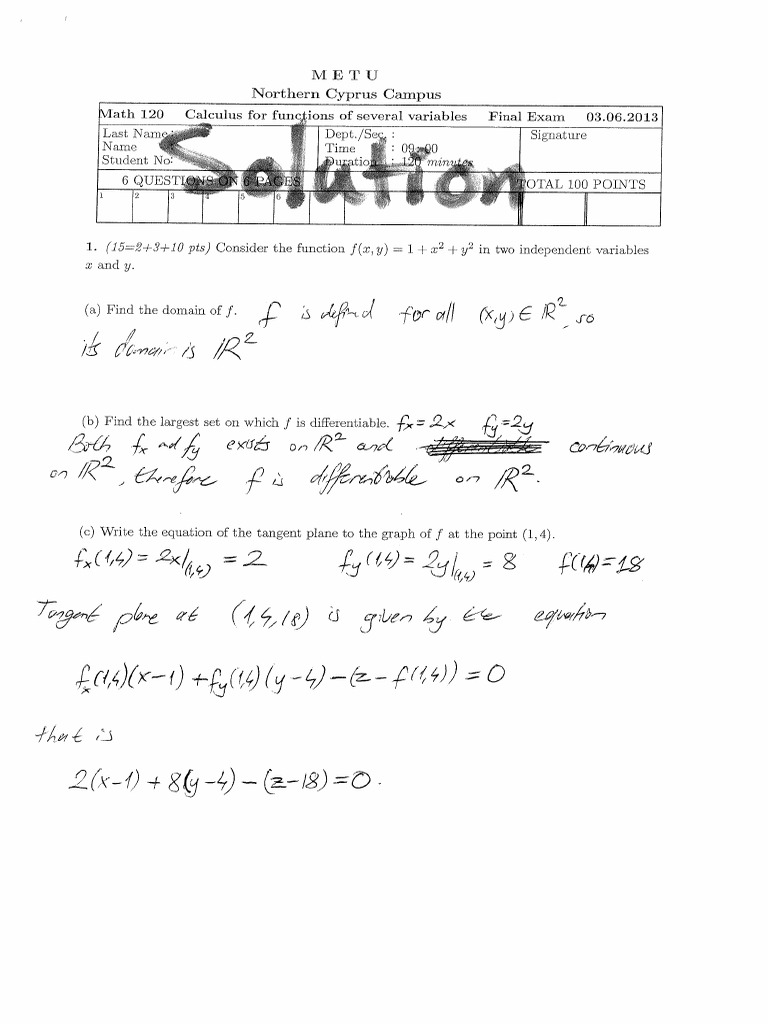 M E T U
Northern Cyprus Campus
Math 120 Calculus for functions of several variables Final Exam 03.06.2013
Last Name: Dept./Sec. : Signature
Name Time : 09:00
Student No: Duration : 120 minutes
Solution
6 QUESTIONS ON 6 PAGES TOTAL 100 POINTS
1 2 3 4 5 6
1. (15=2+3+10 pts) Consider the function f(x, y) = 1 + x² + y² in two independent variables
x and y.
(a) Find the domain of f. f is defined for all (x,y) ∈ ℝ², so
its domain is ℝ²
(b) Find the largest set on which f is differentiable. fx = 2x fy = 2y
Both fx and fy exists on ℝ² and continuous
on ℝ², therefore f is differentiable on ℝ².
(c) Write the equation of the tangent plane to the graph of f at the point (1, 4).
fx(1,4) = 2x|(1,4) = 2 fy(1,4) = 2y|(1,4) = 8 f(1,4) = 18
Tangent plane at (1,4,18) is given by the equation
fx(1,4)(x-1) + fy(1,4)(y-4) - (z - f(1,4)) = 0
that is
2(x-1) + 8(y-4) - (z-18) = 0.